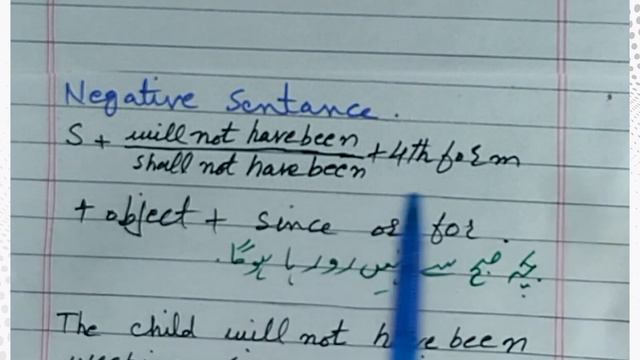 Negative Sentance.
S + will not have been + 4th form
shall not have been
+ object + since or for.
بچہ صبح سے نہیں رو رہا ہوگا.
The child will not have been